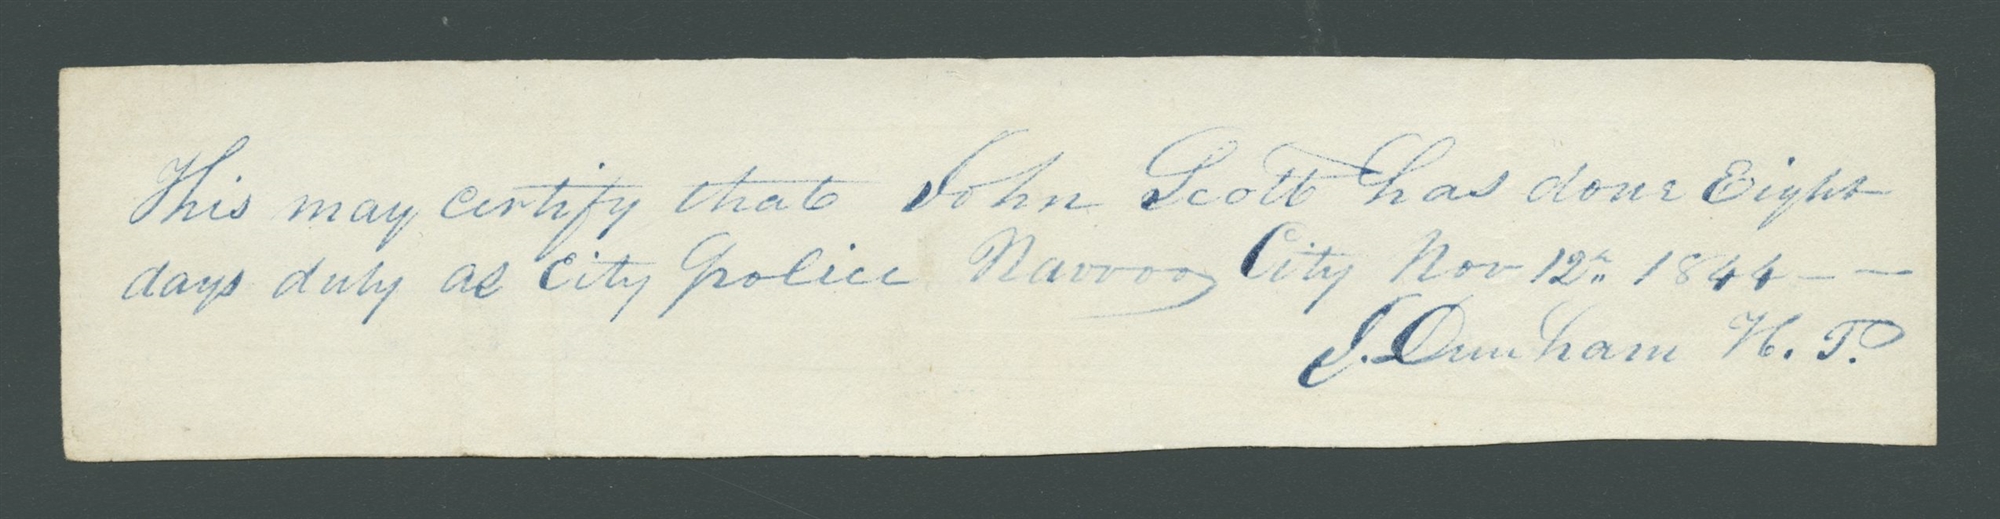 This may certify that John Scott has done Eight
days duty as City police Navvoo City Nov 12th 1844 – –
J. Dunham H. P.